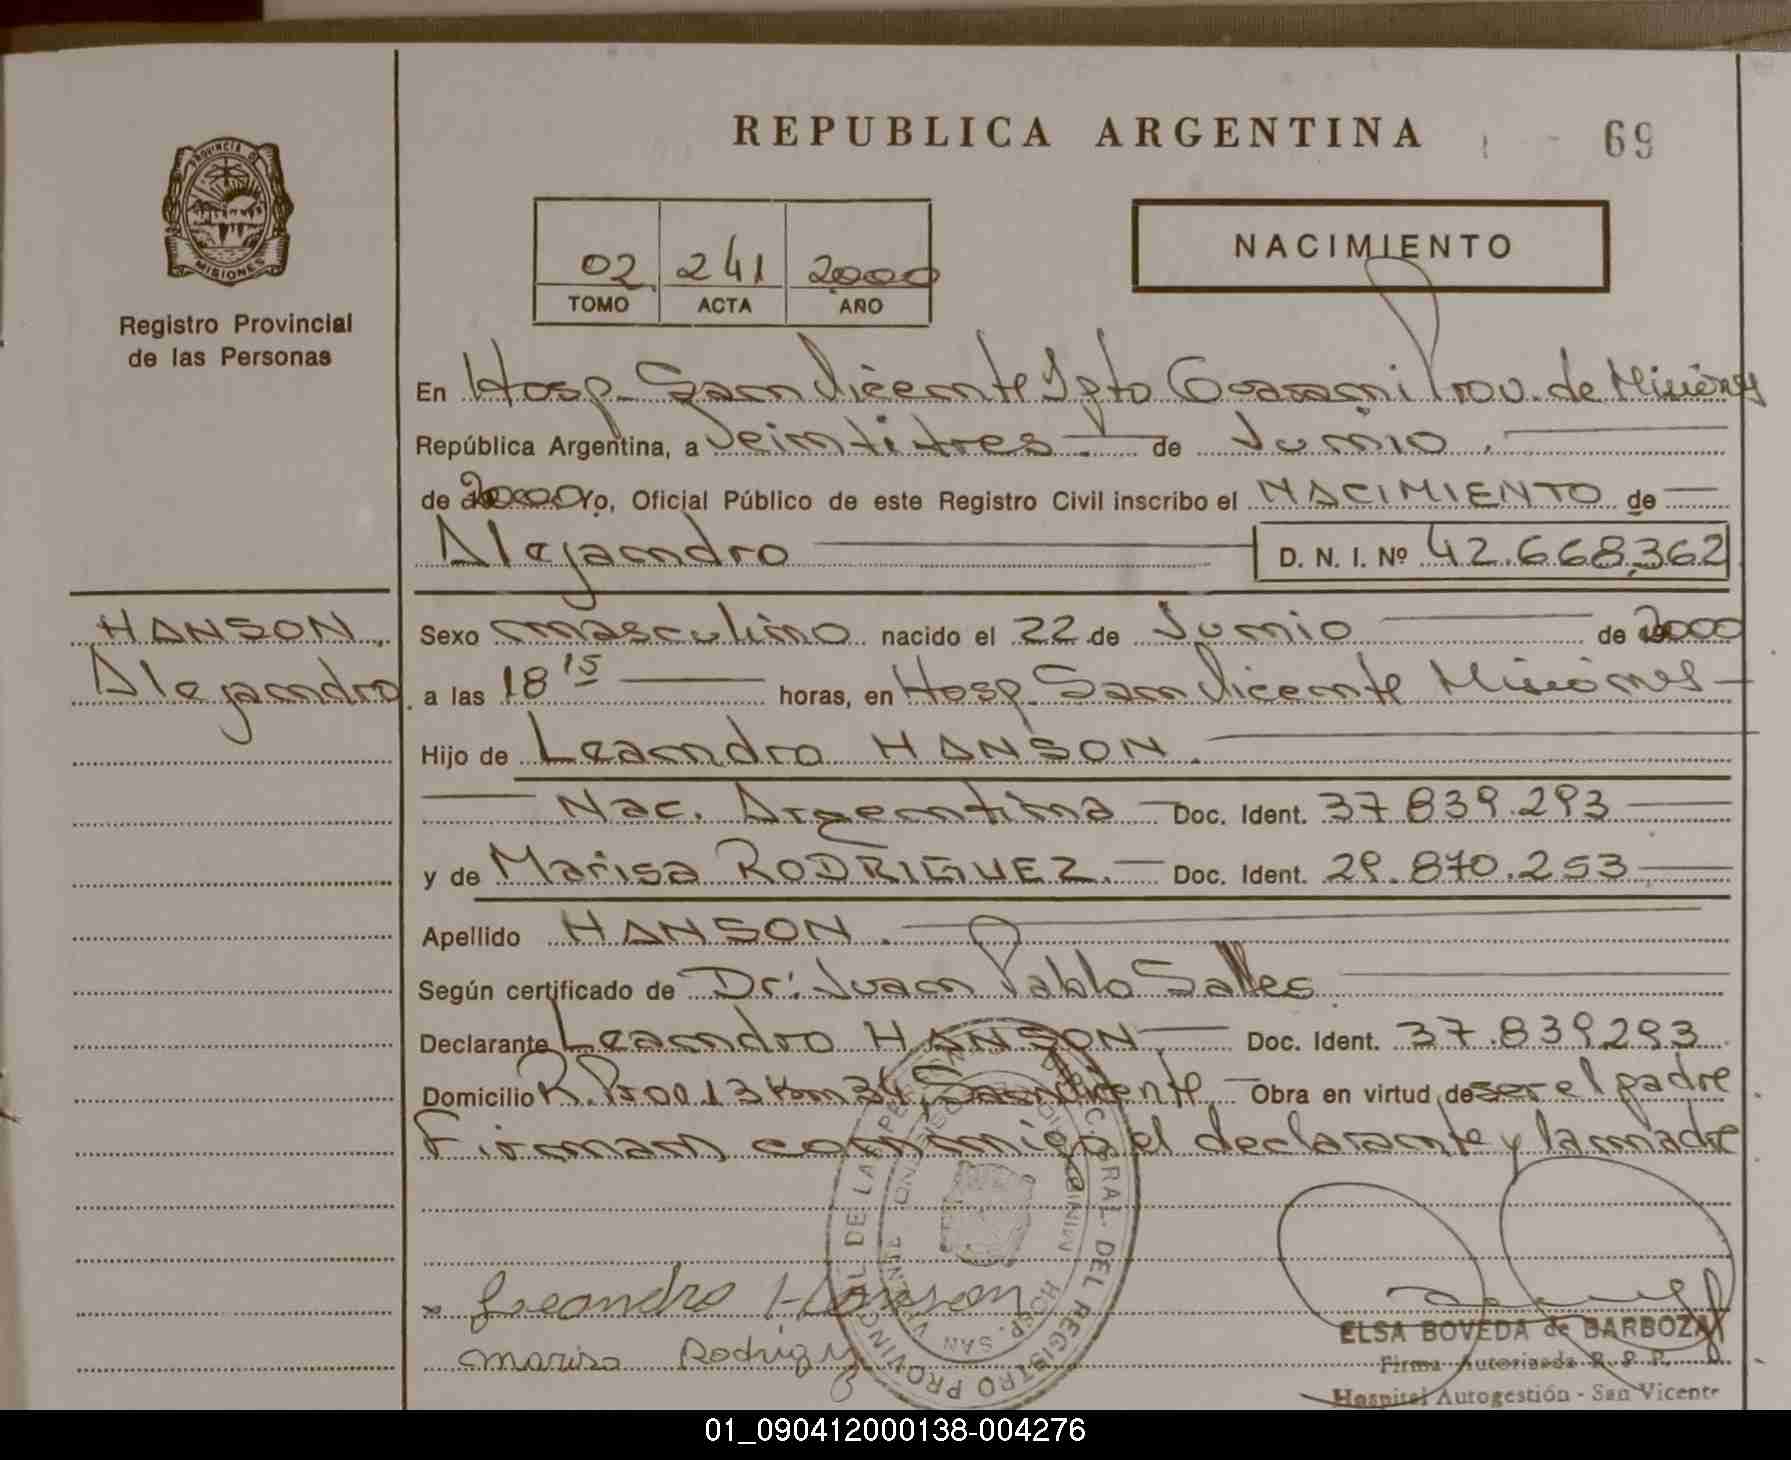 REPUBLICA ARGENTINA
69
PROVINCIA DE
MISIONES
Registro Provincial
de las Personas
02 241 2000
TOMO ACTA AÑO
NACIMIENTO
En Hosp. San Vicente Dpto Guarani Prov. de Misiones
República Argentina, a Veintitres de Junio
de 2000 Yo, Oficial Público de este Registro Civil inscribo el NACIMIENTO de
Alejandro D. N. I. Nº 42.668.362
HANSON
Alejandro
Sexo masculino nacido el 22 de Junio de 2000
a las 18 15 horas, en Hosp. San Vicente Misiones
Hijo de Leandro HANSON.
Nac. Argentina Doc. Ident. 37 839.293
y de Marisa RODRIGUEZ. Doc. Ident. 29.870.253
Apellido HANSON.
Según certificado de Dr: Juan Pablo Salles
Declarante Leandro HANSON, Doc. Ident. 37.839.293
Domicilio R. Prov. 13 Km 34, San Vicente Obra en virtud de ser el padre
Firman conmigo el declarante y la madre
Leandro Hanson
Marisa Rodriguez
DIREC. GRAL. DEL REGISTRO PROVINCIAL DE LAS PERSONAS
HOSP. SAN VICENTE
ELSA BOVEDA de BARBOZA
Firma Autorizada R. P. P.
Hospital Autogestión - San Vicente
01_090412000138-004276